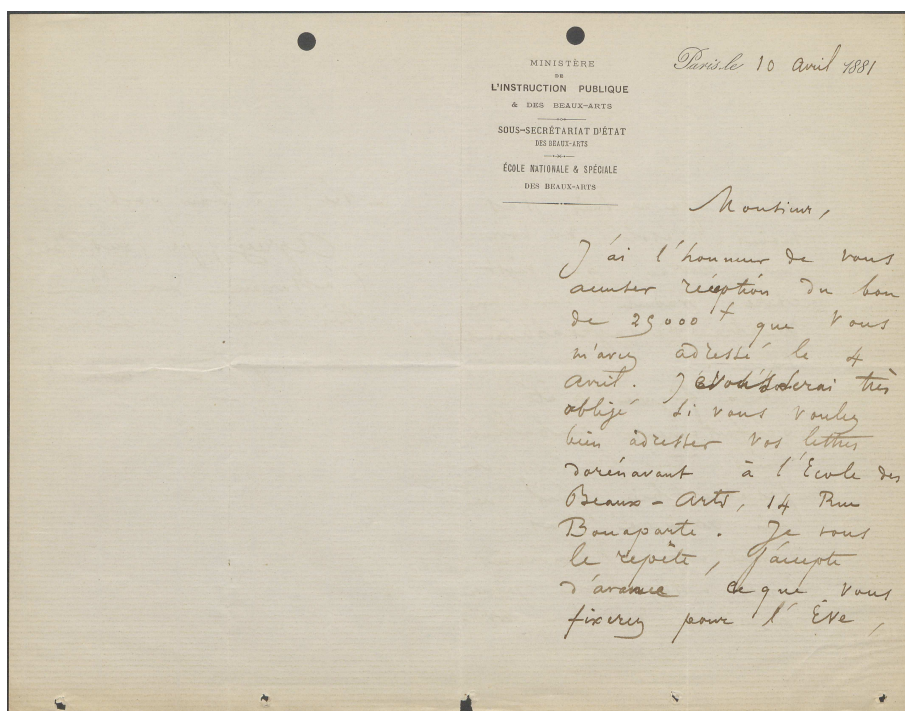 MINISTÈRE
DE
L'INSTRUCTION PUBLIQUE
& DES BEAUX-ARTS
SOUS-SECRÉTARIAT D'ÉTAT
DES BEAUX-ARTS
ÉCOLE NATIONALE & SPÉCIALE
DES BEAUX-ARTS
Paris, le 10 avril 1881
Monsieur,
J'ai l'honneur de vous
accuser réception du bon
de 25000 f que vous
m'avez adressé le 4
avril. Je vous serai très
obligé si vous voulez
bien adresser vos lettres
dorénavant à l'Ecole des
Beaux-Arts, 14 Rue
Bonaparte. Je vous
le repète, j'accepte
d'avance ce que vous
fixerez pour l'Ève,